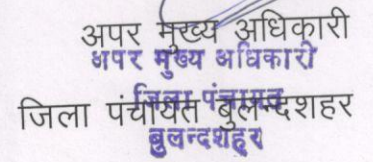 अपर मुख्य अधिकारी
अपर मुख्य अधिकारी
जिला पंचायत
जिला पंचायत बुलन्दशहर
बुलन्दशहर